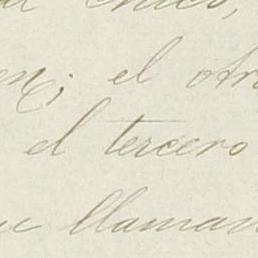 chico,
en; el otro
el tercero
llaman